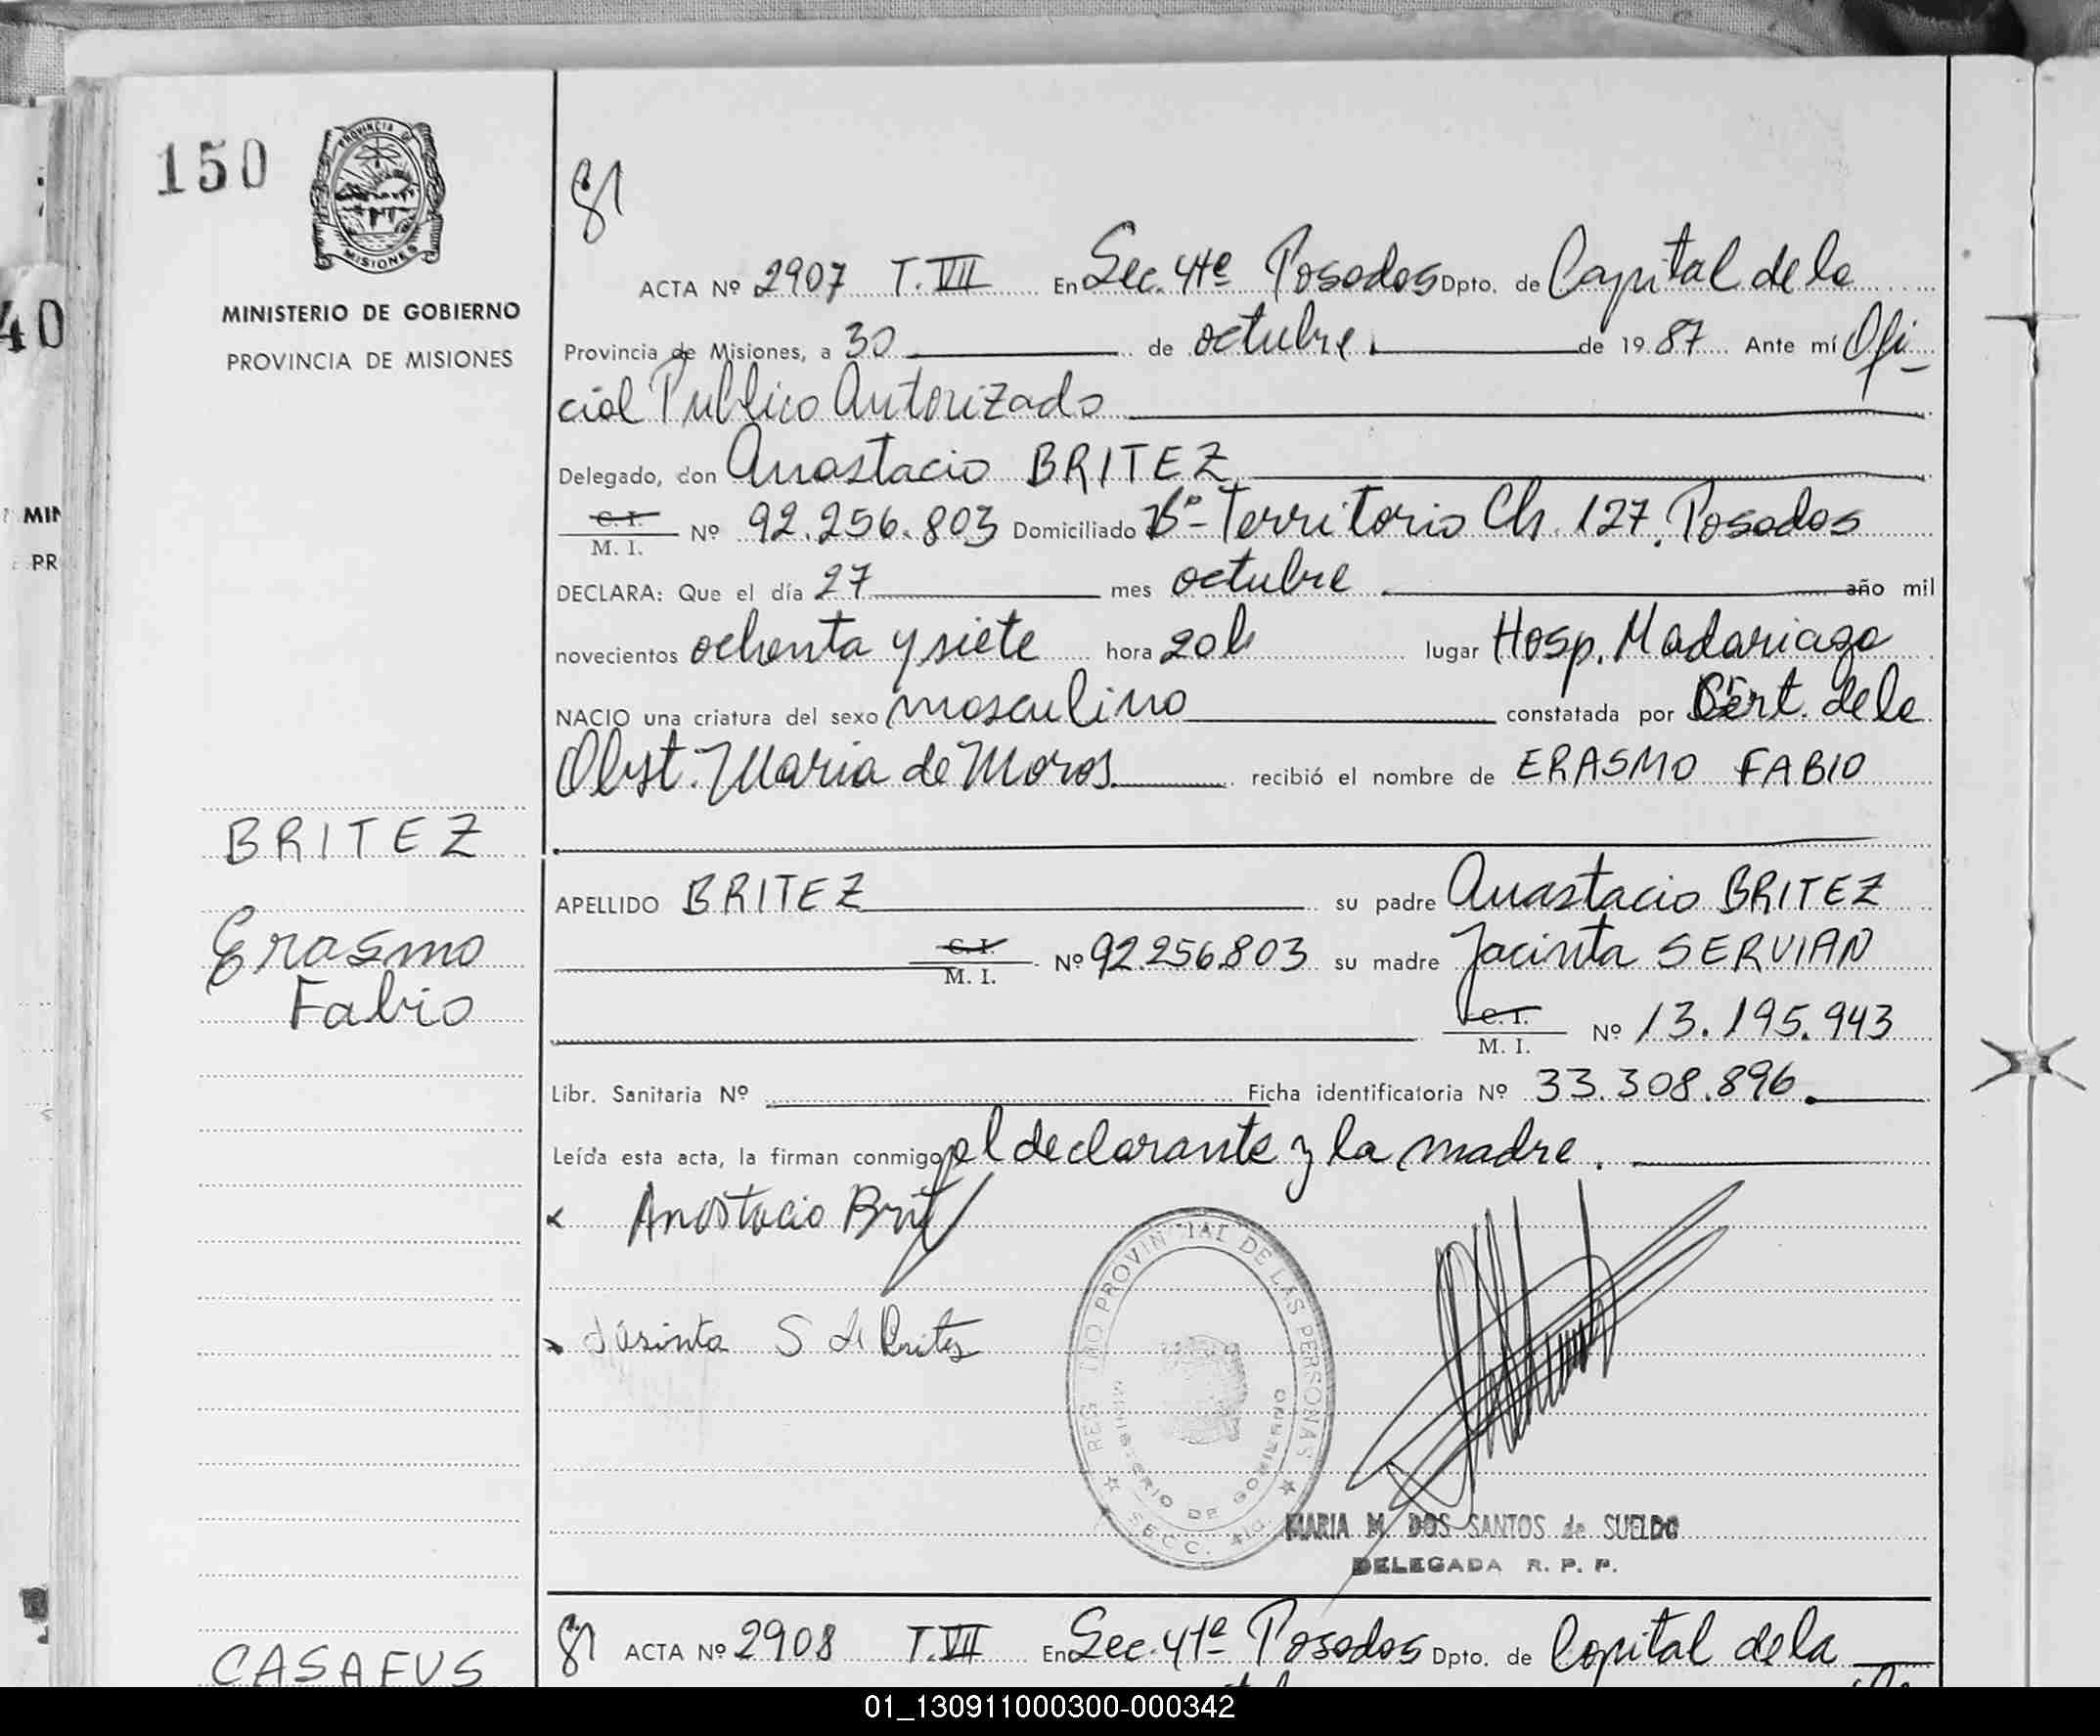 150
PROVINCIA DE
MISIONES
MINISTERIO DE GOBIERNO
PROVINCIA DE MISIONES
40
MIN
PR
ACTA Nº 2907 T. VII En Sec. 4te Posadas Dpto. de Capital de la
Provincia de Misiones, a 30 de octubre de 19 87 Ante mí Ofi-
cial Publico Autorizado
Delegado, don Anastacio BRITEZ
C. I.
M. I. Nº 92.256.803 Domiciliado Bº- Territorio Ch. 127. Posadas
DECLARA: Que el día 27 mes octubre año mil
novecientos ochenta y siete hora 20 h lugar Hosp. Madariaga
NACIO una criatura del sexo masculino constatada por Cert. de la
Obst. Maria de Moros recibió el nombre de ERASMO FABIO
BRITEZ
Erasmo
Fabio
APELLIDO BRITEZ su padre Anastacio BRITEZ
C. I.
M. I. Nº 92.256.803 su madre Jacinta SERVIAN
C. I.
M. I. Nº 13.195.943
Libr. Sanitaria Nº Ficha identificatoria Nº 33.308.896.
Leída esta acta, la firman conmigo el declarante y la madre.
Anastacio Brit
Jasinta S de Brites
REGISTRO PROVINCIAL DE LAS PERSONAS
MINISTERIO DE GOBIERNO
SECC. 4ta
MARIA M. DOS SANTOS de SUELDO
DELEGADA R. P. P.
ACTA Nº 2908 T. VII En Sec. 4te Posadas Dpto. de Capital de la
CASAFUS
01_130911000300-000342